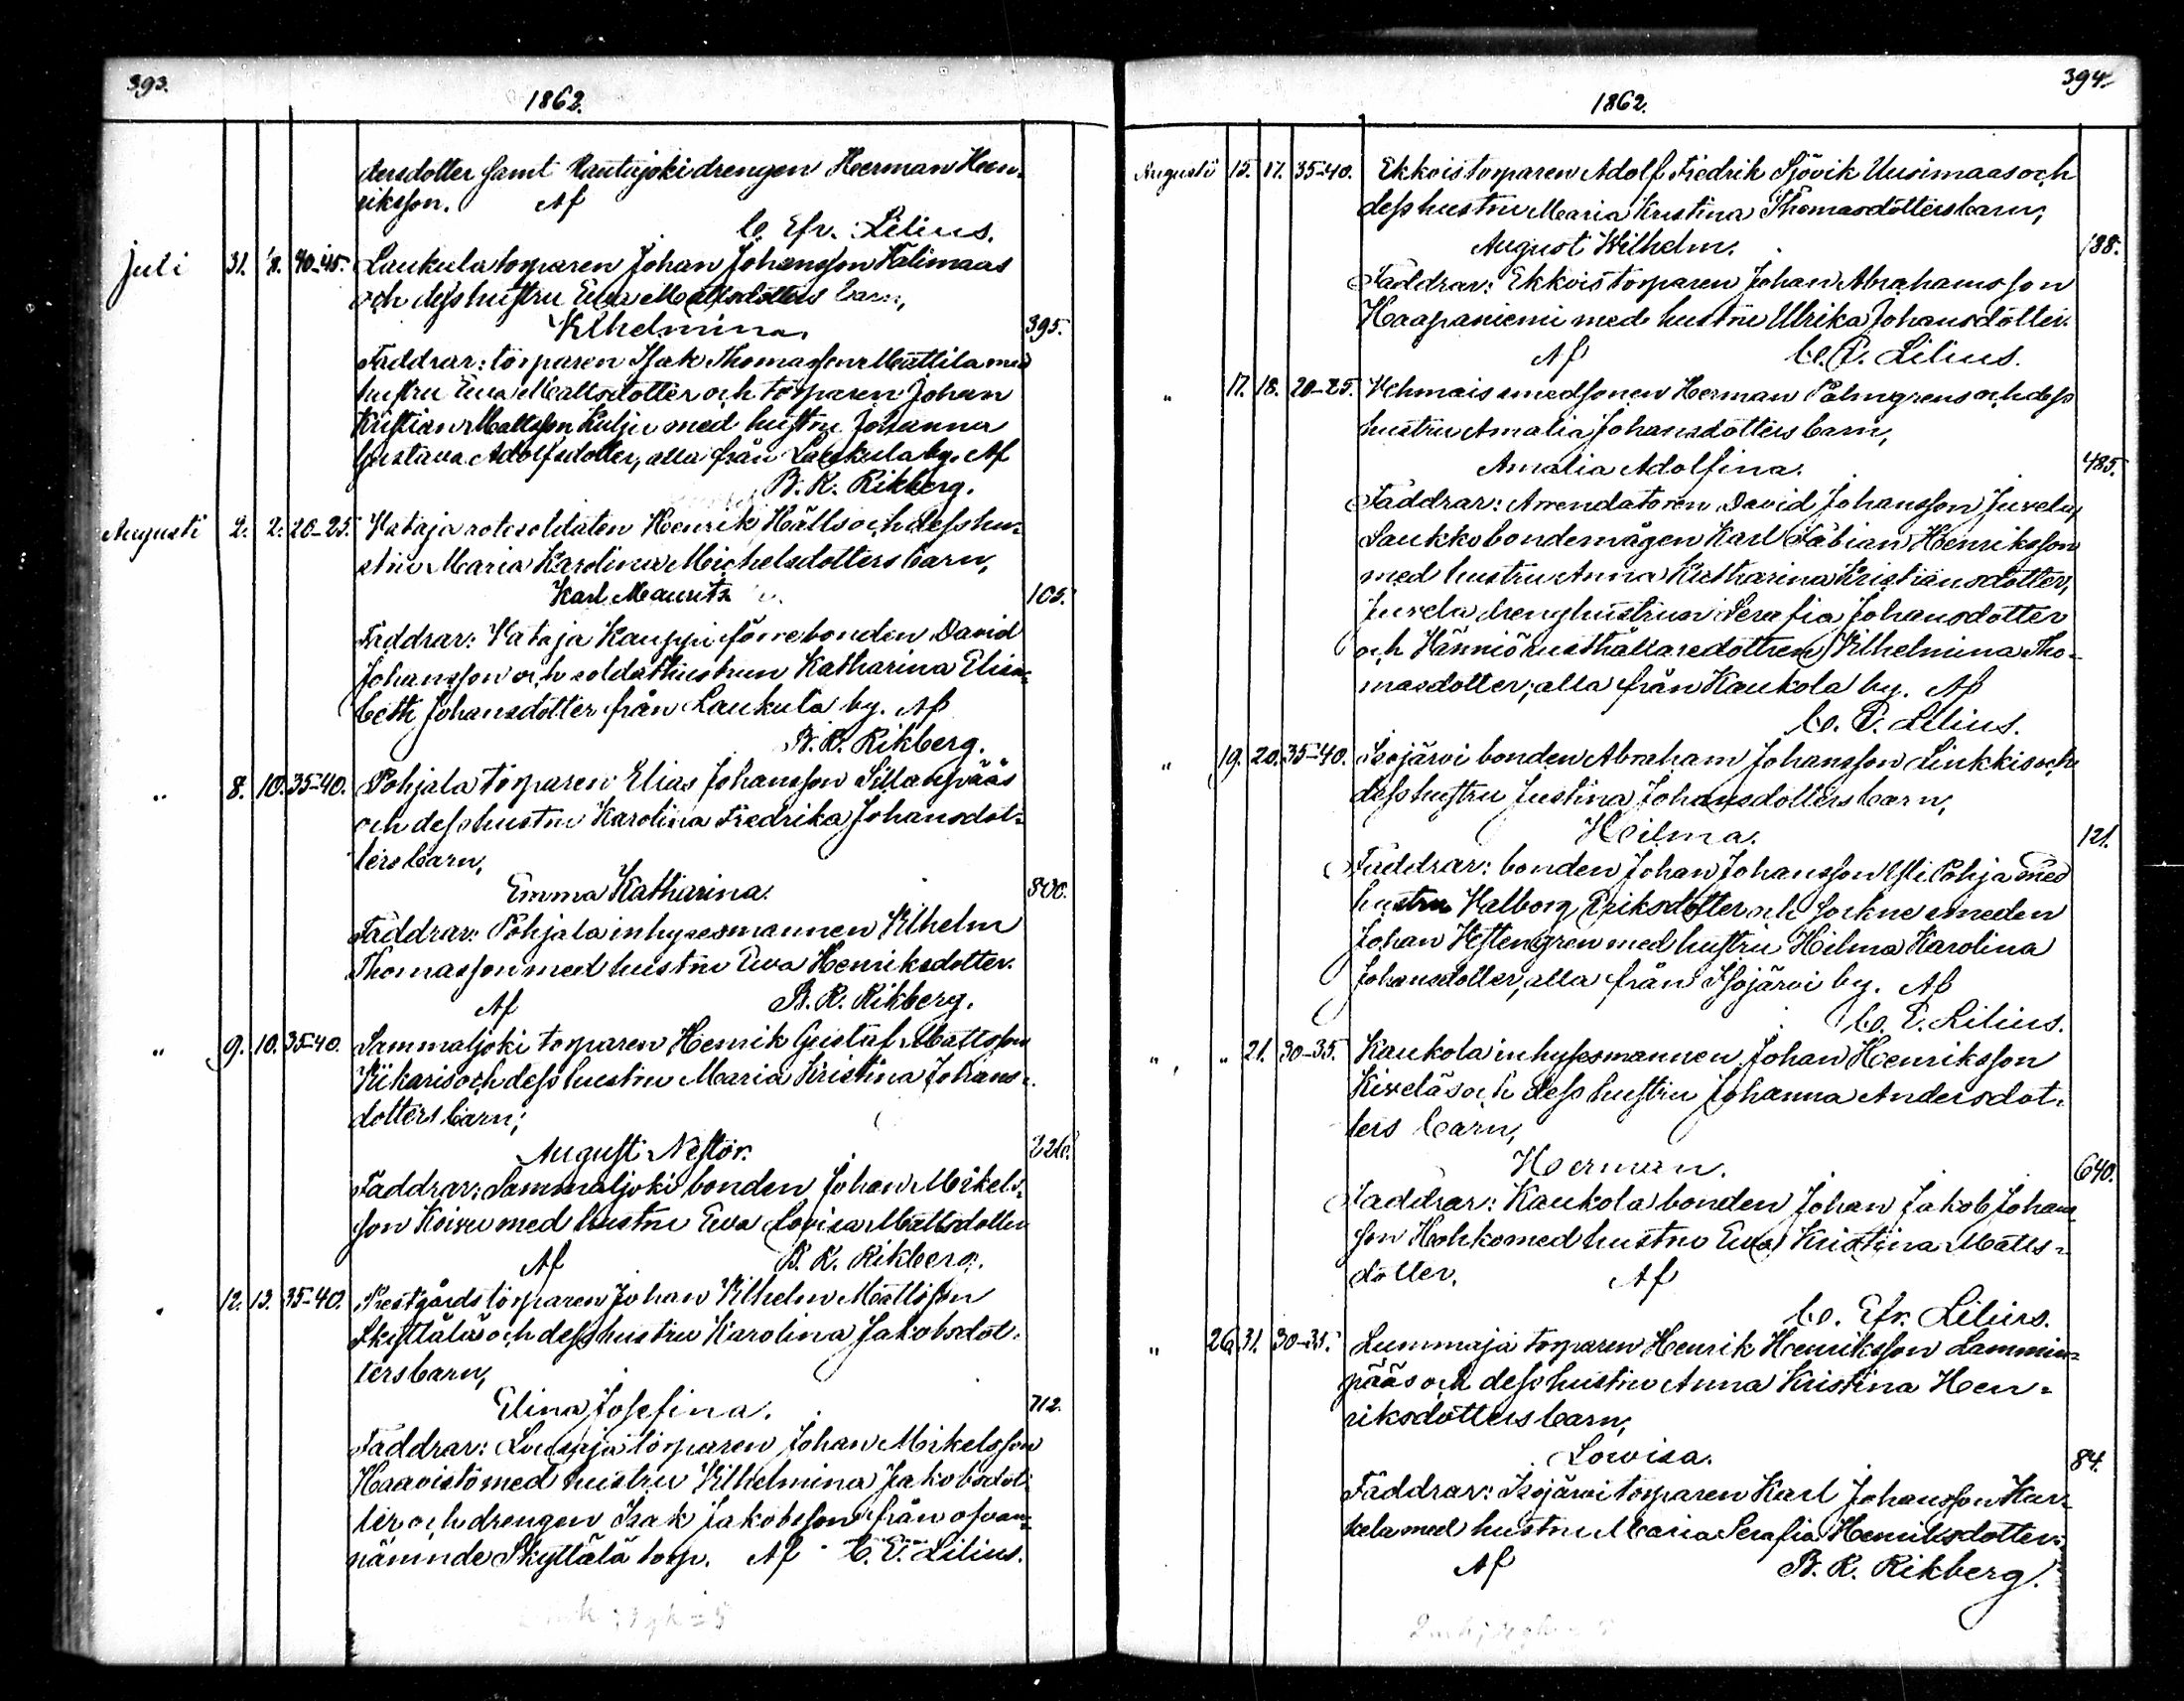 393.
1862.
dersdotter samt Rautajoki drengen Herman Hen-
riksson. Af
C. Efr. Lilius.
Juli 31. 40-45. Laukula torparen Johan Johansson Välimaas
och dess hustru Eva Mattsdotters barn,
Vilhelmina. 395.
Faddrar: torparen Isak Thomasson Mattila med
hustru Eva Mattsdotter och torparen Johan
Kristian Mattsson Kulju med hustru Johanna
Gustava Adolfsdotter, alla från Laukula by. Af
B. R. Rikberg.
Augusti 2. 2. 20-25. Vataja rotesoldaten Henrik Hälls och dess hu-
stru Maria Karolina Michelsdotters barn,
Karl Mauritz 105.
Faddrar: Vataja Kauppi förre bonden David
Johansson och soldathustrun Katharina Elisa-
beth Johansdotter från Laukula by. Af
B. R. Rikberg.
„ 8. 10. 35-40. Pohjala torparen Elias Johansson Sillanpääs
och dess hustru Karolina Fredrika Johansdot-
ters barn,
Emma Katharina. 800.
Faddrar: Pohjala inhysesmannen Vilhelm
Thomasson med hustru Eva Henriksdotter.
Af B. R. Rikberg.
„ 9. 10. 35-40. Sammaljoki torparen Henrik Gustaf Mattsson
Kiikaris och dess hustru Maria Kristina Johans-
dotters barn;
August Nestor. 326.
Faddrar: Sammaljoki bonden Johan Mikels-
son Koivu med hustru Eva Lovisa Mattsdotter
Af B. R. Rikberg.
„ 12. 13. 35-40. Prestgårds torparen Johan Vilhelm Mattsson
Skyttäläs och dess hustru Karolina Jakobsdot-
ters barn,
Elina Josefina. 712.
Faddrar: torparen Johan Mikelsson
Haavisto med hustru Vilhelmina Jakobsdot-
ter och drengen Isak Jakobsson från ofvan-
nämnde Skyttälä torp. Af C. E. Lilius.
394.
1862.
Augusti 15. 17. 35-40. Ekkois torparen Adolf Fredrik Sjövik Uusimaas och
dess hustru Maria Kristina Thomasdotters barn,
August Wilhelm. 188.
Faddrar: Ekkois torparen Johan Abrahamsson
Haapaniemi med hustru Ulrika Johansdotter.
Af C. E. Lilius.
„ 17. 18. 20-25. Vehmais smedsonen Herman Palmgrens och dess
hustru Amalia Johansdotters barn,
Amalia Adolfina. 485.
Faddrar: Arrendatoren David Johansson Juvela,
Laukko bondemågen Karl Fabian Henriksson
med hustru Anna Katharina Kristiansdotter,
Juvela drenghustrun Serafia Johansdotter
och Hänniö rusthållaredottren Vilhelmina Tho-
masdotter, alla från Kaukola by. Af
C. E. Lilius.
„ 19. 20. 35-40. Isojärvi bonden Abraham Johansson Linkkis och
dess hustru Justina Johansdotters barn,
Hilma. 121.
Faddrar: bonden Johan Johansson Yli Pohja med
hustru Valborg Eriksdotter och sockne smeden
Johan Vestengren med hustru Hilma Karolina
Johansdotter, alla från Isojärvi by. Af
C. E. Lilius.
„ „ 21. 30-35. Kaukola inhysesmannen Johan Henriksson
Kiveläs och dess hustru Johanna Andersdot-
ters barn,
Herman. 640.
Faddrar: Kaukola bonden Johan Jakob Johans-
son Hohko med hustru Eva Kristina Matts-
dotter. Af
C. Efr. Lilius.
„ 26. 31. 30-35. Lummaja torparen Henrik Henriksson Lammin-
pääs och dess hustru Anna Kristina Hen-
riksdotters barn,
Lowisa. 84.
Faddrar: Isojärvi torparen Karl Johansson Har-
kela med hustru Maria Serafia Henriksdotter.
Af B. R. Rikberg.